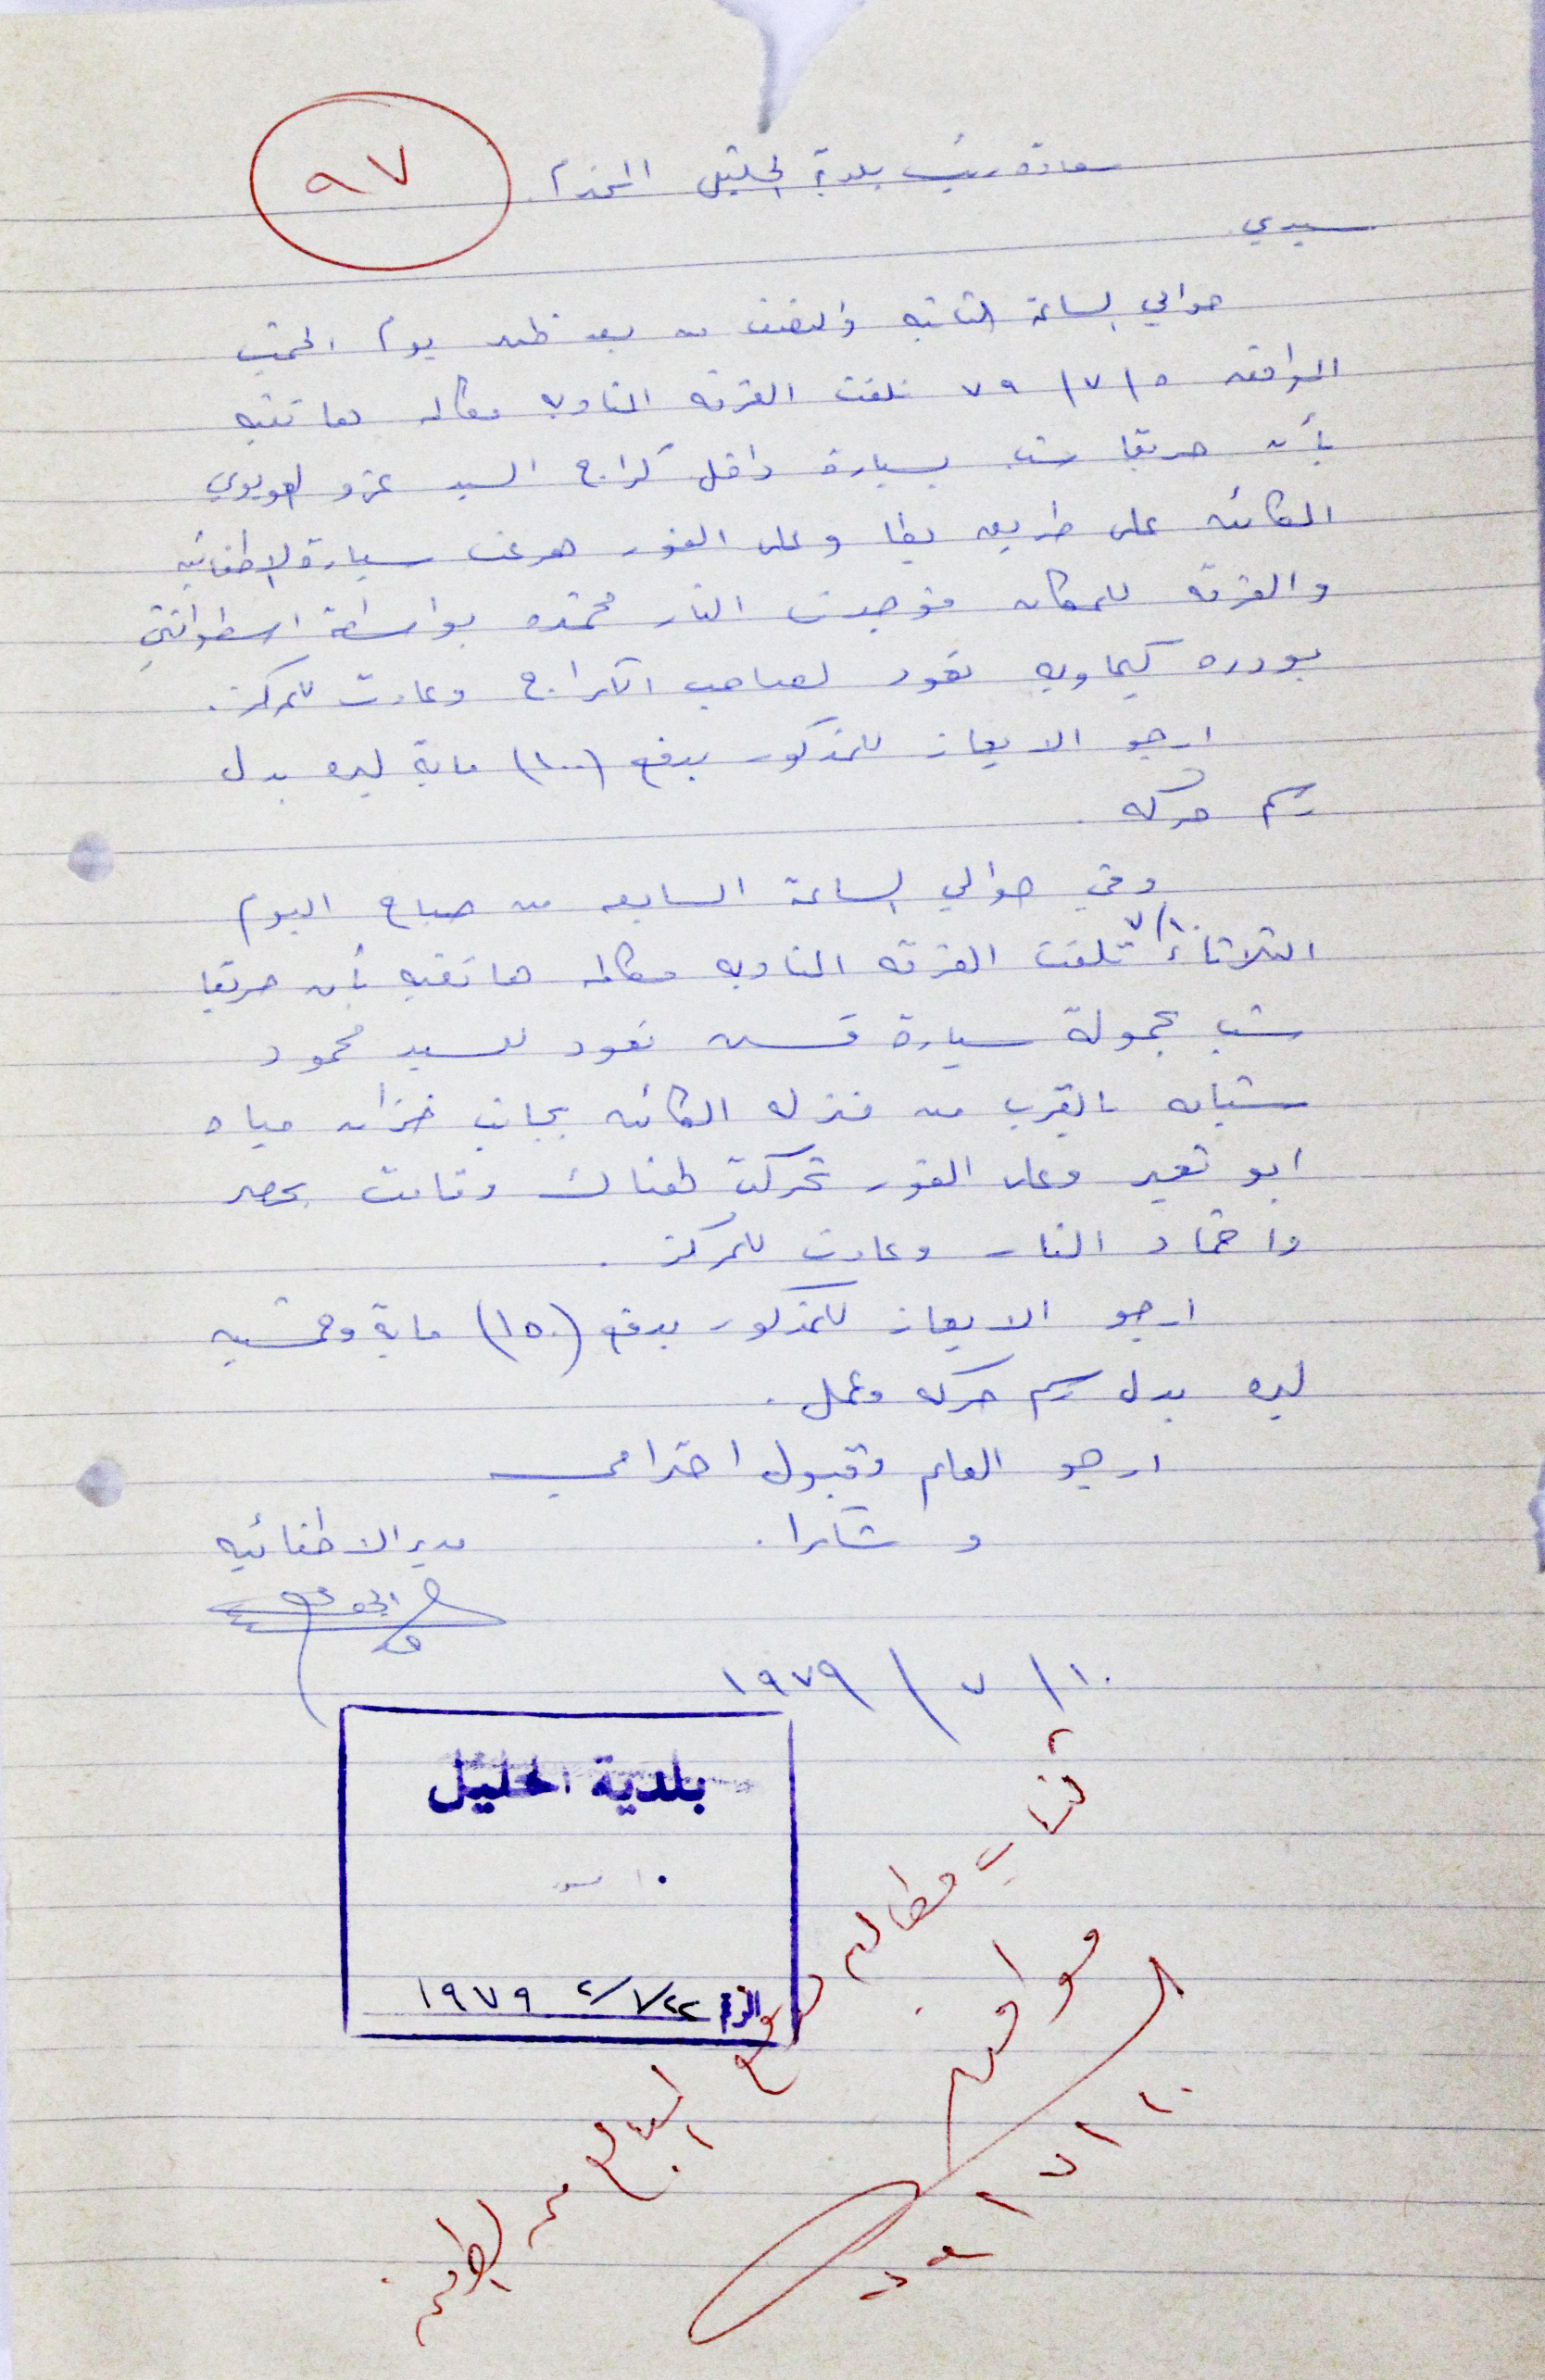 ٩٧
سعادة رئيس بلدية الخليل المحترم
سيدي
حوالي الساعة الثانيه والنصف من بعد ظهر يوم الخميس
الموافق ٧٩/٧/٥ تلقت الفرقه المناوبه مكالمه هاتفيه
بأن حريقا شب بسيارة داخل كراج السيد عزو العويوي
الكائنه على طريق يطا وعلى الفور هرعت سيارة الاطفائيه
والفرقه للمكان فوجدت النار مخمده بواسطة اسطوانتي
بودره كيماويه تعود لصاحب الكراج وعادت للمركز.
ارجو الايعاز للمذكور بدفع (١٠٠) ماية ليره بدل
رسم حركه.
وفي حوالي الساعة السابعه من صباح اليوم
الثلاثاء ٧/١٠ تلقت الفرقه المناوبه مكالمه هاتفيه بأن حريقا
شب بحمولة سيارة تعود للسيد محمود
شبانه بالقرب من منزله الكائنه بجانب خزان مياه
ابو نعير وعلى الفور تحركت لهناك وقامت بحصر
واخماد النار وعادت للمركز.
ارجو الايعاز للمذكور بدفع (١٥٠) ماية وخمسين
ليره بدل رسم حركه وعمل.
ارجو العلم وقبول احترامي
وشكرا.
مدير الاطفائيه
١٩٧٩/٧/١٠
بلدية الخليل
الرقم ٢/٧/٢٢ ١٩٧٩
كتاب مطالبه بدفع المبالغ
موافق
٧٩/٧/١٠